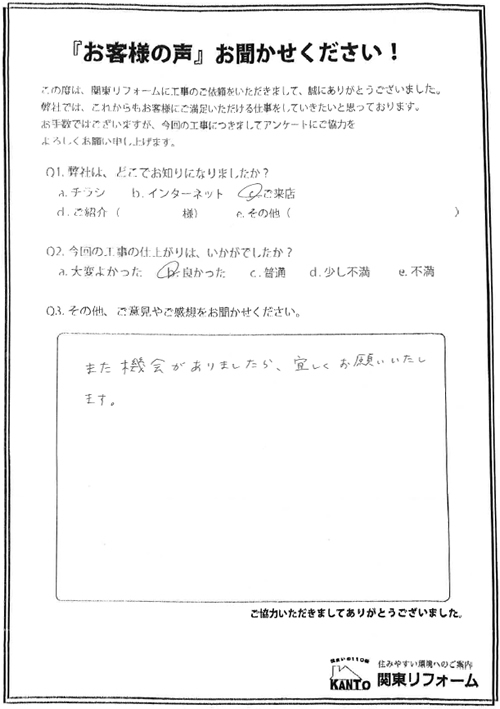 『お客様の声』お聞かせください！
この度は、関東リフォームに工事のご依頼をいただきまして、誠にありがとうございました。
弊社では、これからもお客様にご満足いただける仕事をしていきたいと思っております。
お手数ではございますが、今回の工事につきましてアンケートにご協力を
よろしくお願い申し上げます。
Q1. 弊社は、どこでお知りになりましたか？
a. チラシ　b. インターネット　c. ご来店
d. ご紹介（　　　様）　e. その他（　　　）
Q2. 今回の工事の仕上がりは、いかがでしたか？
a. 大変よかった　b. 良かった　c. 普通　d. 少し不満　e. 不満
Q3. その他、ご意見やご感想をお聞かせください。
また機会がありましたら、宜しくお願いいたし
ます。
ご協力いただきましてありがとうございました。
住まいの110番
KANTO
住みやすい環境へのご案内
関東リフォーム